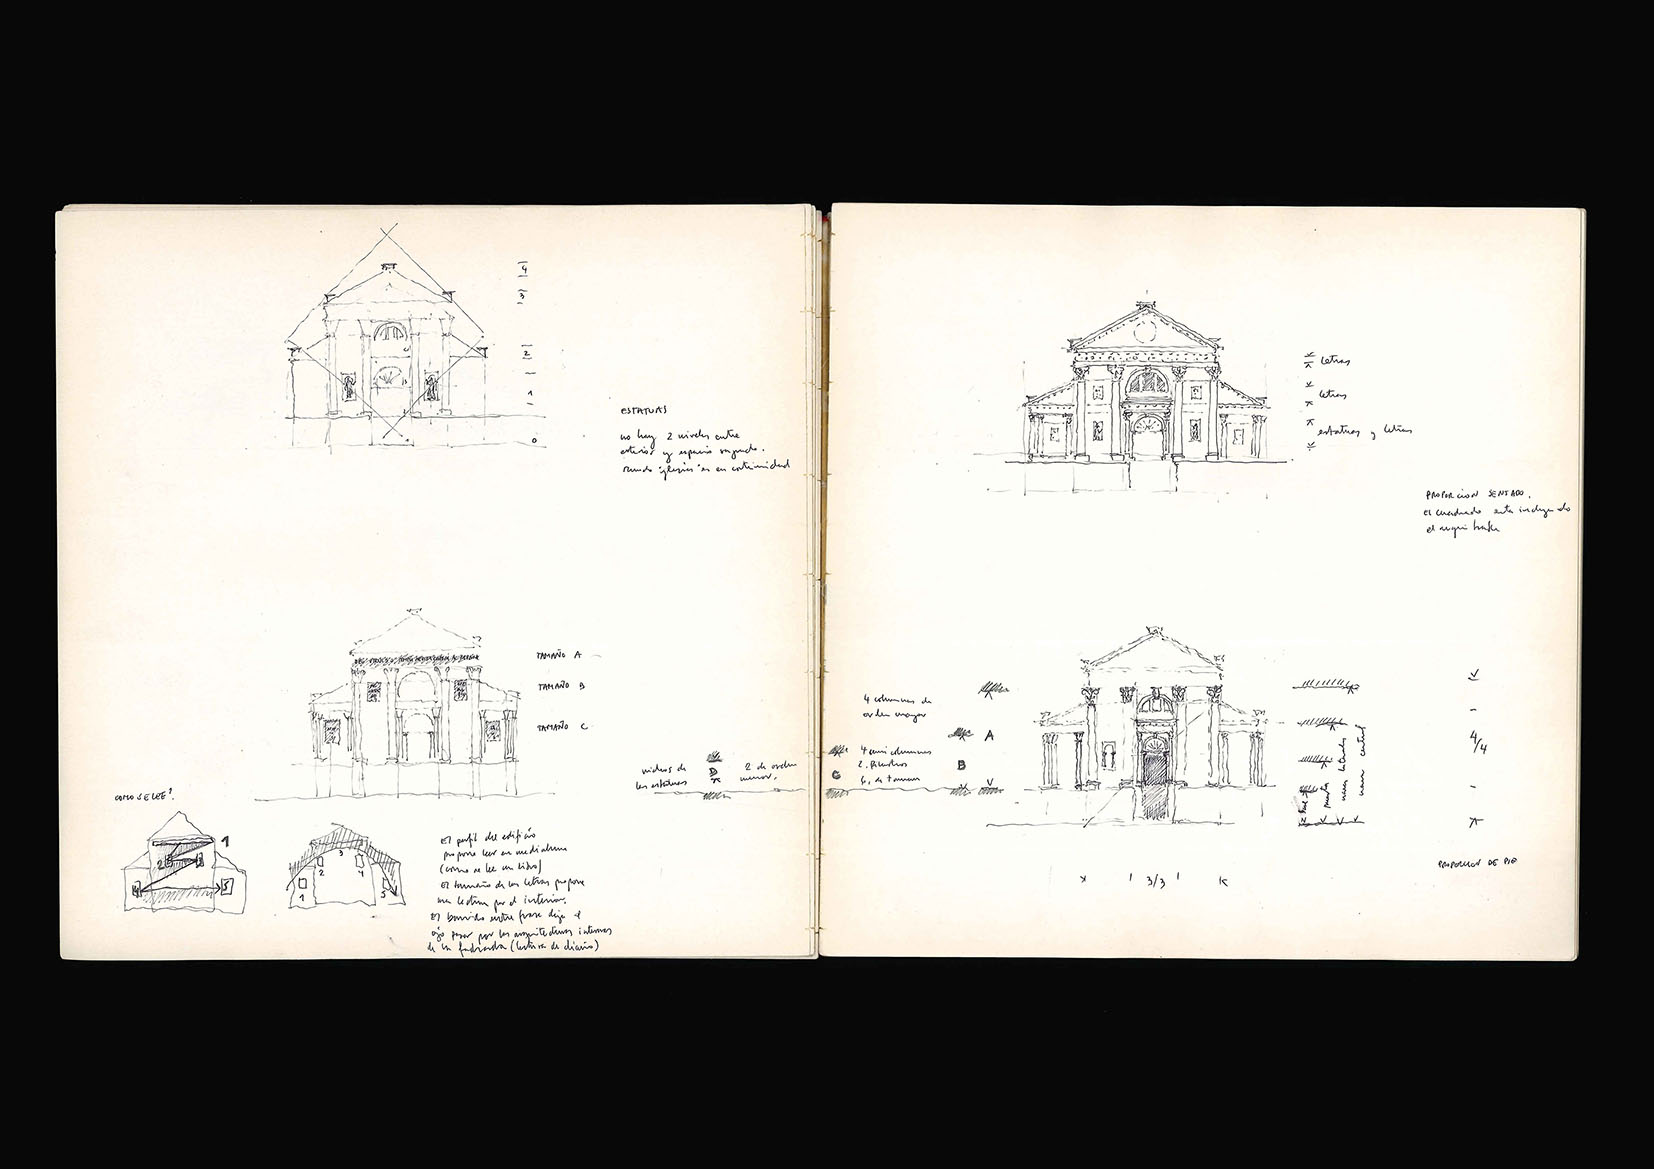 4
3
2
1
0
ESTATUAS
no hay 2 niveles entre
exterior y espacio sagrado.
mundo iglesia es en continuidad
TAMAÑO A
TAMAÑO B
TAMAÑO C
nichos de
las estatuas
D
2 de orden
menor.
COMO SE LEE?
1
2
3
4
5
1
2
3
4
5
El perfil del edificio
propone leer en medialuna
(como se lee un libro)
El tamaño de las letras propone
una lectura por el interior.
El barrido entre frase deja el
ojo pasar por las arquitecturas internas
de la fachada (lectura de diario)
letras
letras
estatuas y letras
PROPORCION SENTADO.
el cuadrado esta incluyendo
el arquitrabe
4 columnas de
orden mayor
A
4 semi columnas
B
C
puerta
nave laterales
nave central
4/4
3/3
PROPORCION DE PIE